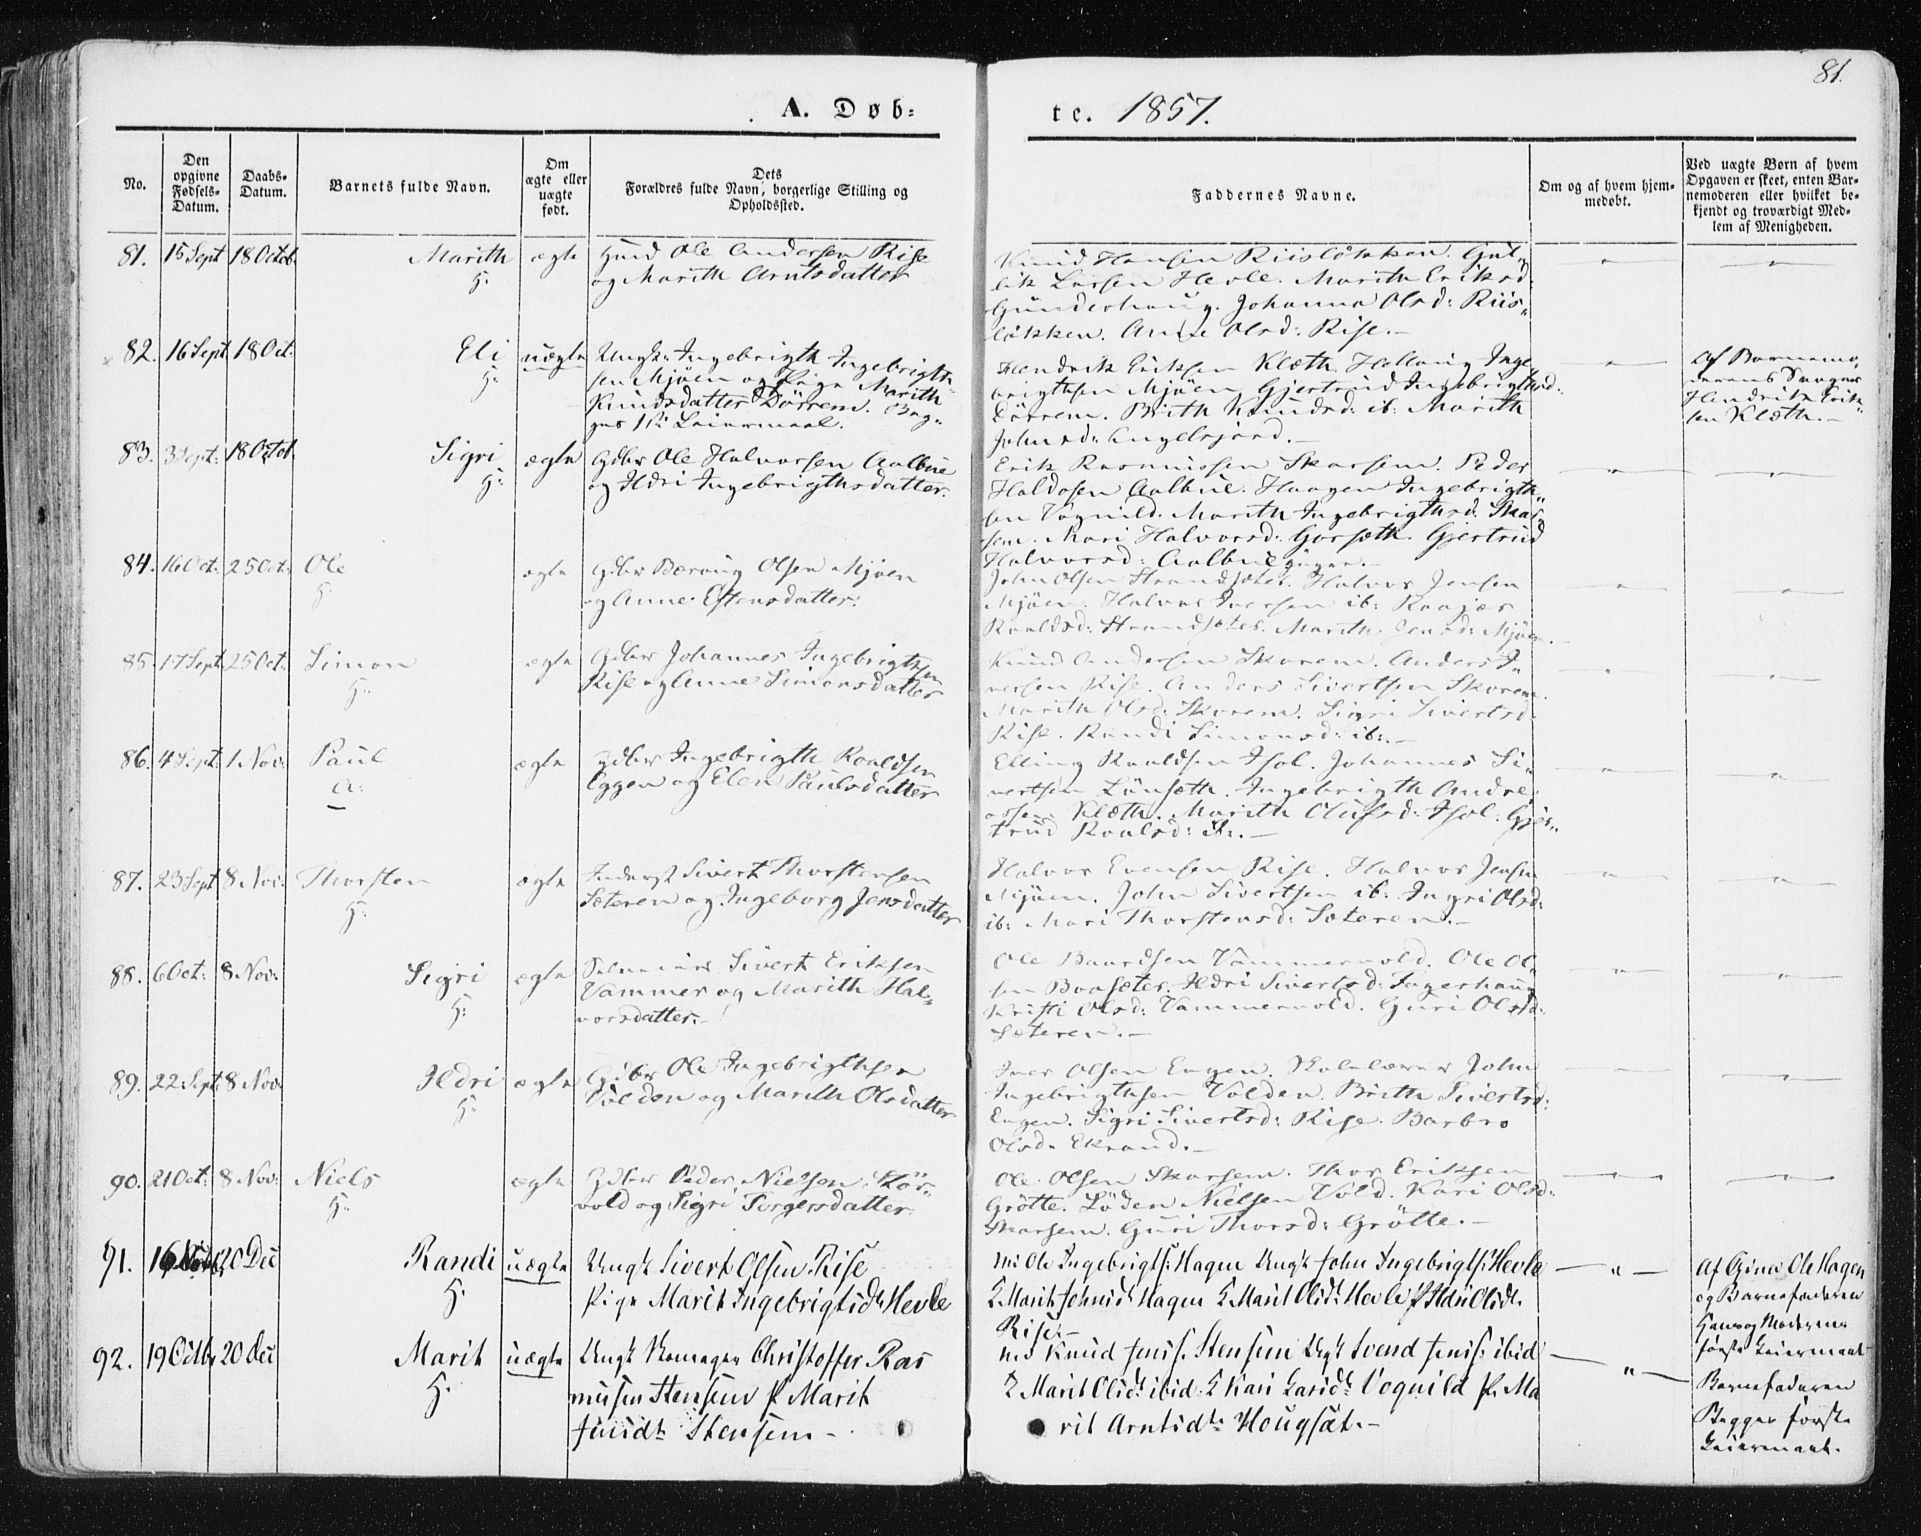 81.
A. Døb=
te. 1857.
No.
Den opgivne Fødsels-Datum.
Daabs-Datum.
Barnets fulde Navn.
Om ægte eller uægte født.
Dets Forældres fulde Navn, borgerlige Stilling og Opholdssted.
Faddernes Navne.
Om og af hvem hjemmedøbt.
Ved uægte Børn af hvem Opgaven er skeet, enten Barnemoderen eller hvilket bekjendt og troværdigt Medlem af Menigheden.
81. 15 Sept 18 Octob. Marith ægte Ole Andersen Rise
H. og Marith Arntsdatter
Knud Hansen Riisløkken. Gul-
Larsen Hevle. Marith Eriksd:
Gunderhaug. Johanna Olsd: Riis-
løkken. Anne Olsd: Rise.-
82. 16 Sept 18 Oct. Eli uægte Ungk: Ingebrigth Ingebrigth-
H. sen Mjöen og Pige Marith
Knudsdatter Dörrem. Beg-
ges 1ste Leiermaal.
Hendrik Eriksen Klæth. Inge-
brigthsen Mjöen Gjertrud Ingebrigthsd:
Dörrem. Brith Knudsd: ib: Marith
Johnsd: Angelsjord.-
Af Barnemo-
derens Svoger
Hendrik Erik-
sen Klæth.-
83. 3 Sept: 18 Octob Sigri ægte Gdbr Ole Halvorsen Aalbue
H. og Ildri Ingebrigthsdatter.
Erik Rasmussen Skarsem. Peder
Haldosen Aalbue. Haagen Ingebrigth-
sen Vognild. Marith Ingebrigthsd. Skar-
sem. Mari Halvorsd: Gorseth. Gjertrud
Halvorsd: Aalbue
84. 16 Oct. 25 Oct: Ole ægte Gdbr Olsen Mjöen
H og Anne Estensdatter.
John Olsen Strandsæter. Halvor Jensen
Mjöen. Halvor Iversen ib:
Roaldsd: Strandsæter. Marith Jensd: Mjöen.-
85. 17 Sept. 25 Oct. Simon ægte Gdbr Johannes Ingebrigthsen
H. Rise og Anne Simonsdatter
Knud Andersen Skorem. Anders I-
versen Rise. Anders Sivertsen Skorem.
Marith Olsd: Skorem. Sigri Sivertsd:
Rise. Randi Simonsd: ib:.-
86. 4 Sept: 1 Nov: Paul ægte Gdbr Ingebrigth Roaldsen
A. Eggen og Elen Paulsdatter
Elling Roaldsen Hol. Johannes Si-
vertsen Lönseth. Ingebrigth Andre-
assen Klæth. Marith Olufsd: Hol. Gjer-
trud Roalsd: ib:.-
87. 23 Sept 8 Nov: Thorsten ægte Inderst Sivert Thorstensen
H. Sæteren og Ingeborg Jensdatter
Halvor Evensen Rise. Halvor Jensen
Mjöen. John Sivertsen ib: Ingri Olsd:
ib: Mari Thorstensd: Sæteren.-
88. 6 Oct: 8 Nov: Sigri ægte Sivert Eriksen
H. Vammer og Marith Hal-
vorsdatter.-
Ole Baardsen Vammervold. Ole Ol-
sen Boasæter. Ildri Sivertsd: Fagerhaug
Kristi Olsd: Vammervold. Guri Olsd:
Sæteren.-
89. 22 Sept. 8 Nov. Ildri ægte Gdbr Ole Ingebrigthsen
H. Volden og Marith Olsdatter
Iver Olsen Engen. Skolelærer John
Ingebrigthsen Volden. Brith Sivertsd:
Engen. Sigri Sivertsd: Rise. Barbro
Olsd. Ekrand.-
90. 21 Oct: 8 Nov: Niels ægte Gdbr Peder Nielsen Stör-
H. vold og Sigri Torgersdatter
Ole Olsen Skarsem. Thor Eriksen
Grötte. Löden Nielsen Vold. Kari Olsd:
Skarsem. Guri Thorsd: Grötte.-
91. 16 20 Dec Randi uægte Ungk Sivert Olsen Rise
H. Pige Marit Ingebrigtsdtr Hevle
Ole Ingebrigts: Hagen Ungk John Ingebrigts: Hevle
K Marit Johnsdtr Hagen K Marit Olsdtr Hevle P Ildri Olsdtr
Rise.-
Af Ole Hagen
og Barnefaderen
Hans og Moderens
første Leiermaal
92. 19 Octbr 20 Dec Marit uægte Ungk Christoffer Ras
H. musen Stensem P Marit
Stensem-
Knud Jenss. Stensem Ungk Svend Jenss: ibid
K Marit Olsdtr ibid: K Kari Larsdtr Vognild P. Ma
rit Arntsdtr Hougsæt.-
Barnefaderen
Begges første
Leiermaal.